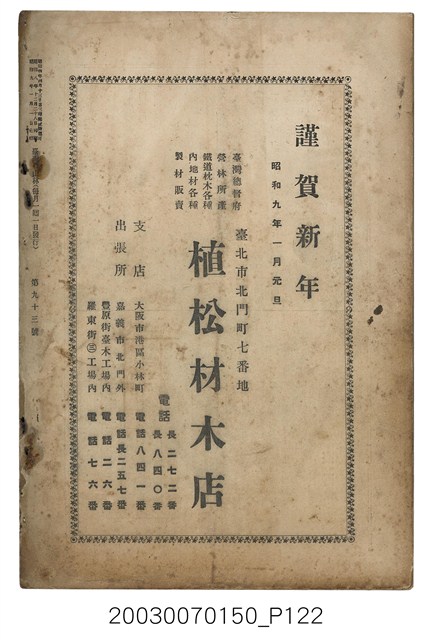 謹賀新年
昭和九年一月元旦
臺灣總督府
營林所產
鐵道枕木各種
內地材各種
製材販賣
臺北市北門町七番地
植松材木店
電話
長二七二番
長八四〇番
支店
大阪市港區小林町
電話八四一番
出張所
嘉義市北門外
電話長二五七番
豐原街臺木工場內
電話二六番
羅東街㊂工場內
電話七六番
第九十三號
20030070150_P122